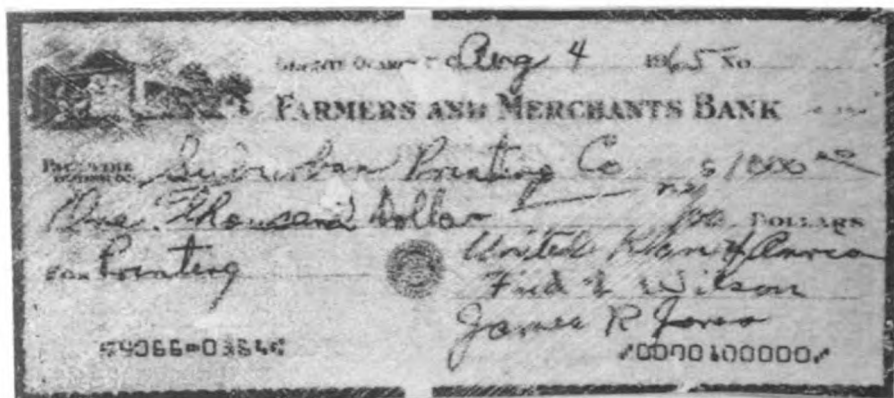 Granite Quarry Aug 4 1965 No
FARMERS AND MERCHANTS BANK
PAY TO THE ORDER OF Suburban Printing Co $1000 00
One Thousand Dollar no/100 DOLLARS
FOR Printing
United Klan of America
Fred L Wilson
James R Jones